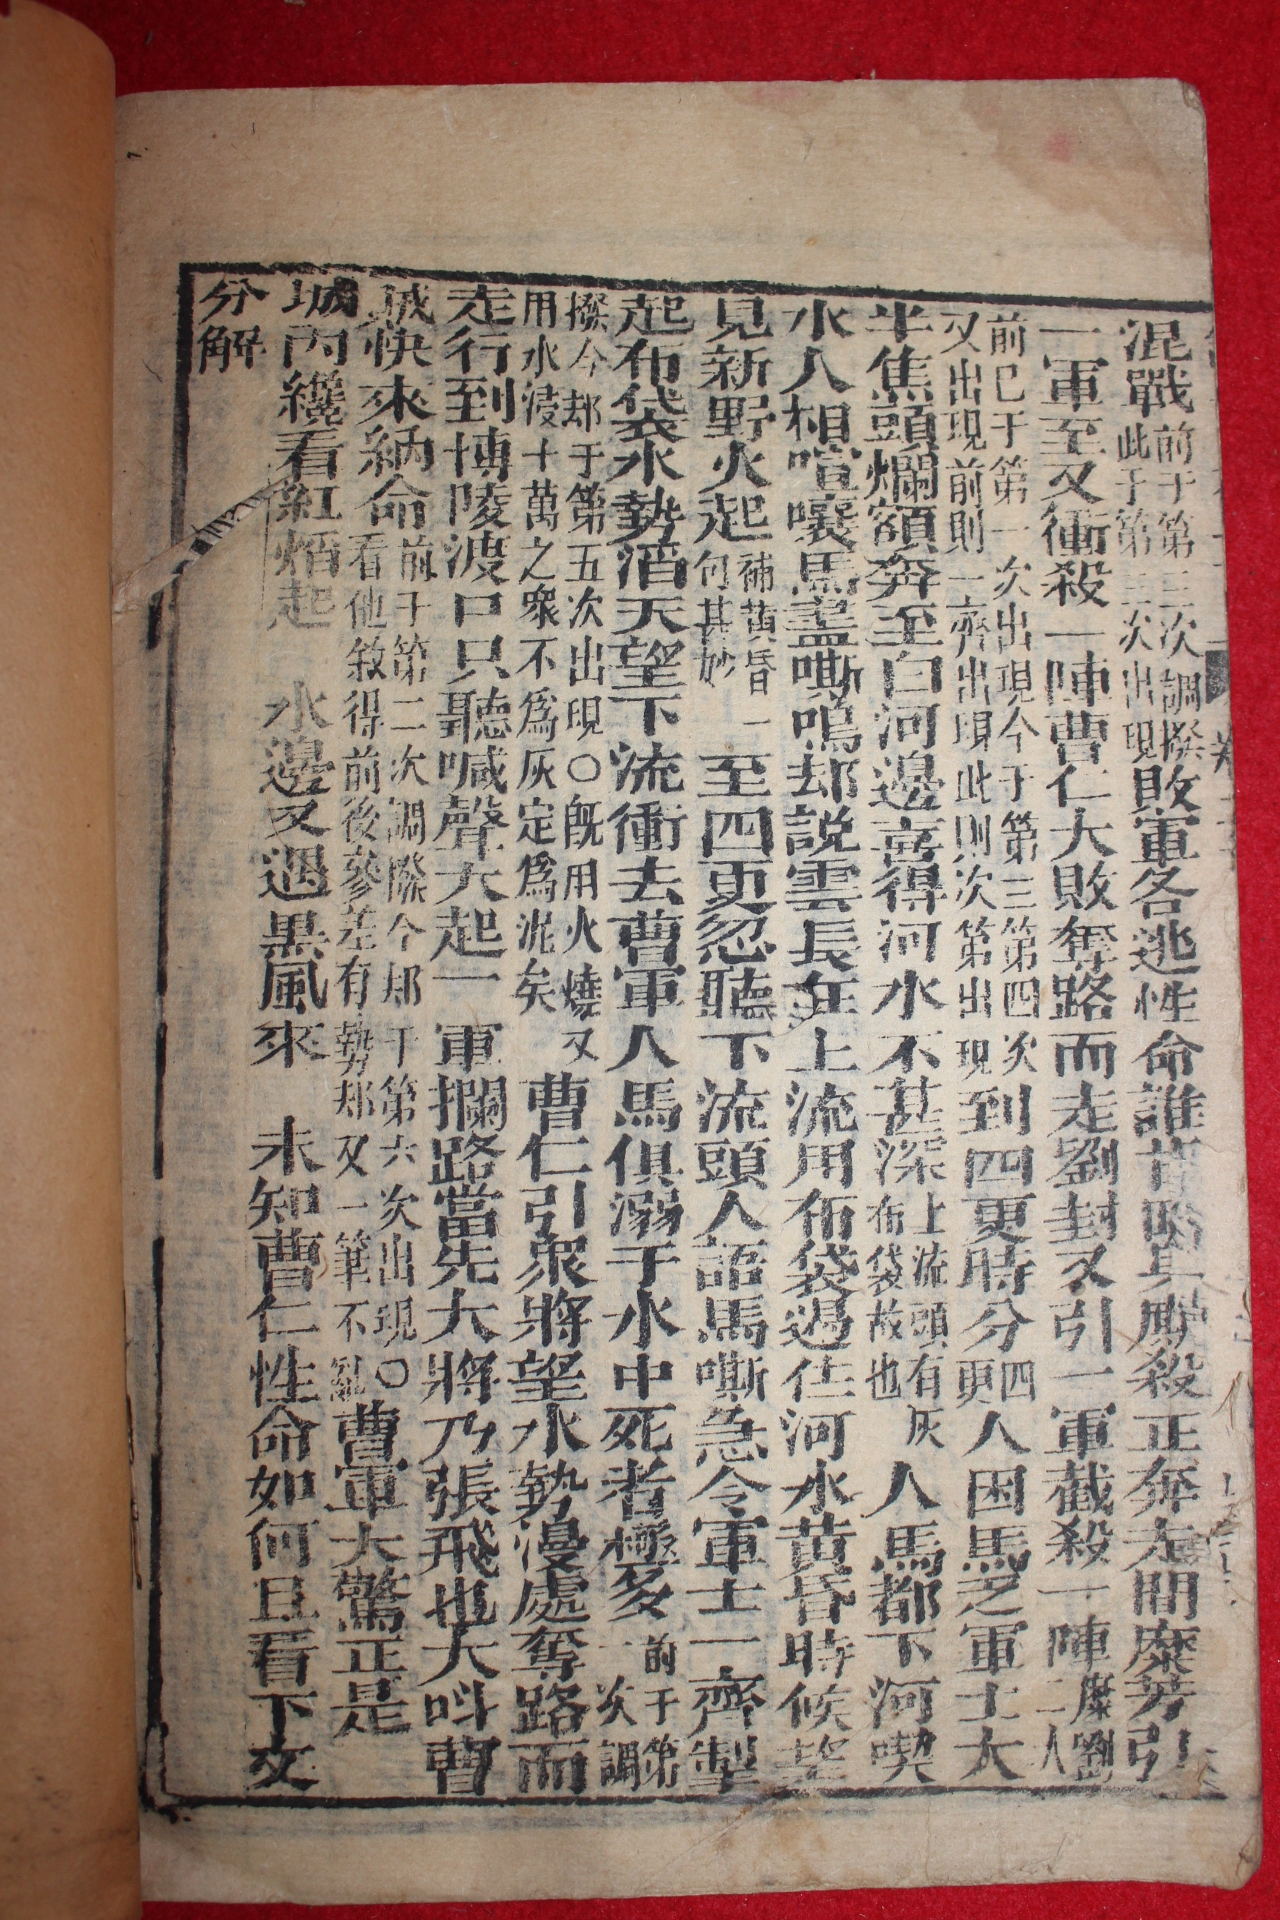 混戰前于第三次調撥此于第二次出現敗軍各逃性命誰肯戀兵厮殺正奔走間糜芳引
一軍至又衝殺一陣曹仁大敗奪路而走劉封又引一軍截殺一陣糜劉二人
前已于第一次出現今于第三第四次又出現前則一齊出現此則次第出現到四更時分四更人困馬乏軍士大
半焦頭爛額奔至白河邊喜得河水不甚深上流頭有灰布袋故也人馬都下河喫
水人相喧嚷馬盡嘶鳴却說雲長在上流用布袋遏住河水黄昏時候望
見新野火起補黄昏一句甚妙至四更忽聽下流頭人語馬嘶急令軍士一齊掣
起布袋水勢滔天望下流衝去曹軍人馬俱溺于水中死者極多前于第一次調
撥今却于第五次出現○旣用火燒又用水渰十萬之衆不爲灰定爲泥矣曹仁引衆將望水勢漫處奪路而
走行到博陵渡口只聽喊聲大起一軍攔路當先大將乃張飛也大呌曹
賊快來納命前于第二次調撥今却于第六次出現○看他敘得前後參差有勢却又一筆不亂曹軍大驚正是
城内纔看紅焰起 水邊又遇黒風來 未知曹仁性命如何且看下文
分解